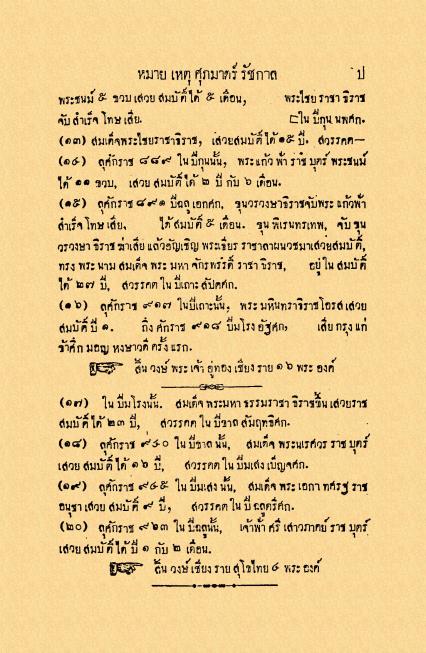 หมาย เหตุ ศุภมาตร์ รัชกาล ป
พระชนม์ ๕ ขวบ เสวย สมบัติ ได้ ๕ เดือน, พระไชย ราชา ธิราช
จับ สำเร็จ โทษ เสีย. ในปีกุน นพศก.
(๑๓) สมเด็จพระไชยราชาธิราช, เสวยสมบัติ ได้ ๑๕ ปี. สวรรคต—
(๑๔) ลุศักราช ๘๘๙ ใน ปีกุนนั้น, พระแก้ว ฟ้า ราช บุตร์ พระชนม์
ได้ ๑๑ ขวบ, เสวย สมบัติ ได้ ๒ ปี กับ ๖ เดือน.
(๑๕) ลุศักราช ๘๙๑ ปีฉลู เอกศก. ขุนวรวงษาธิราชจับพระ แก้วฟ้า
สำเร็จ โทษ เสีย, ได้ สมบัติ ๕ เดือน. ขุน พิเรนทรเทพ, จับ ขุน
วรวงษา ธิราช ฆ่าเสีย แล้วอัญเชิญ พระเธียร ราชาลาผนวชมาเสวยสมบัติ,
ทรง พระ นาม สมเด็จ พระ มหา จักรพรรดิ์ ราชา ธิราช, อยู่ ใน สมบัติ
ได้ ๒๗ ปี, สวรรคต ใน ปีเถาะ สัปตศก.
(๑๖) ลุศักราช ๙๑๗ ในปีเถาะนั้น, พระ มหินทราธิราชโอรส เสวย
สมบัติ ปี ๑. ถึง ศักราช ๙๑๘ ปีมโรง อัฐศก, เสีย กรุง แก่
ข้าศึก มอญ หงษาวดี ครั้ง แรก.
สิ้น วงษ์ พระ เจ้า อู่ทอง เชียง ราย ๑๖ พระ องค์
(๑๗) ใน ปีมโรงนั้น. สมเด็จพระมหา ธรรมราชา ธิราชขึ้น เสวยราช
สมบัติ ได้ ๒๓ ปี, สวรรคต ใน ปีขาล สัมฤทธิศก.
(๑๘) ลุศักราช ๙๔๐ ใน ปีขาล นั้น, สมเด็จ พระนเรศวร ราช บุตร์
เสวย สมบัติ ได้ ๑๖ ปี, สวรรคต ใน ปีมเสง เบ็ญจศก.
(๑๙) ลุศักราช ๙๕๕ ใน ปีมเสง นั้น, สมเด็จ พระ เอกา ทศรฐ ราช
อนุชา เสวย สมบัติ ๙ ปี, สวรรคต ใน ปี ฉลูตรีศก.
(๒๐) ลุศักราช ๙๖๓ ใน ปีฉลูนั้น, เจ้าฟ้า ศรี เสาวภาคย์ ราช บุตร์
เสวย สมบัติ ได้ ปี ๑ กับ ๒ เดือน.
สิ้น วงษ์ เชียง ราย สุโขไทย ๔ พระ องค์